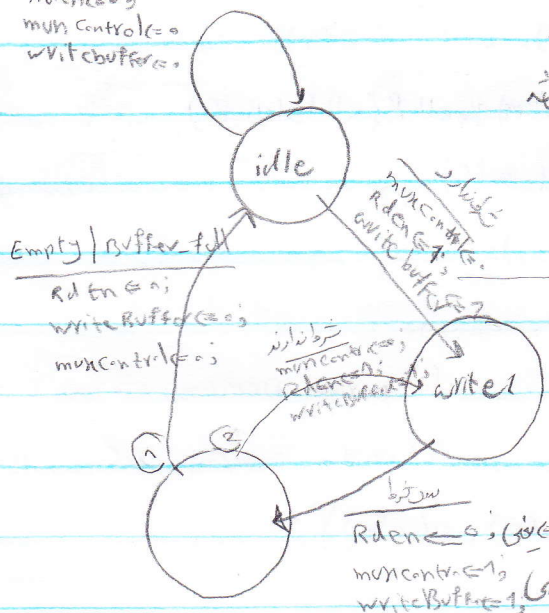 muxcontrol<=0
writebuffer<=0
idle
شرط ندارد
muxcontrol<=0
Rden<=1;
writebuffer<=1
Empty | Buffer_full
Rden<=0;
writeBuffer<=0;
muxcontrol<=0;
شرط ندارند
muxcontrol<=0;
Rden<=1;
writeBuffer<=1;
write1
1
2
بدون شرط
Rden<=0; یعنی
muxcontrol<=1;
writeBuffer<=1;